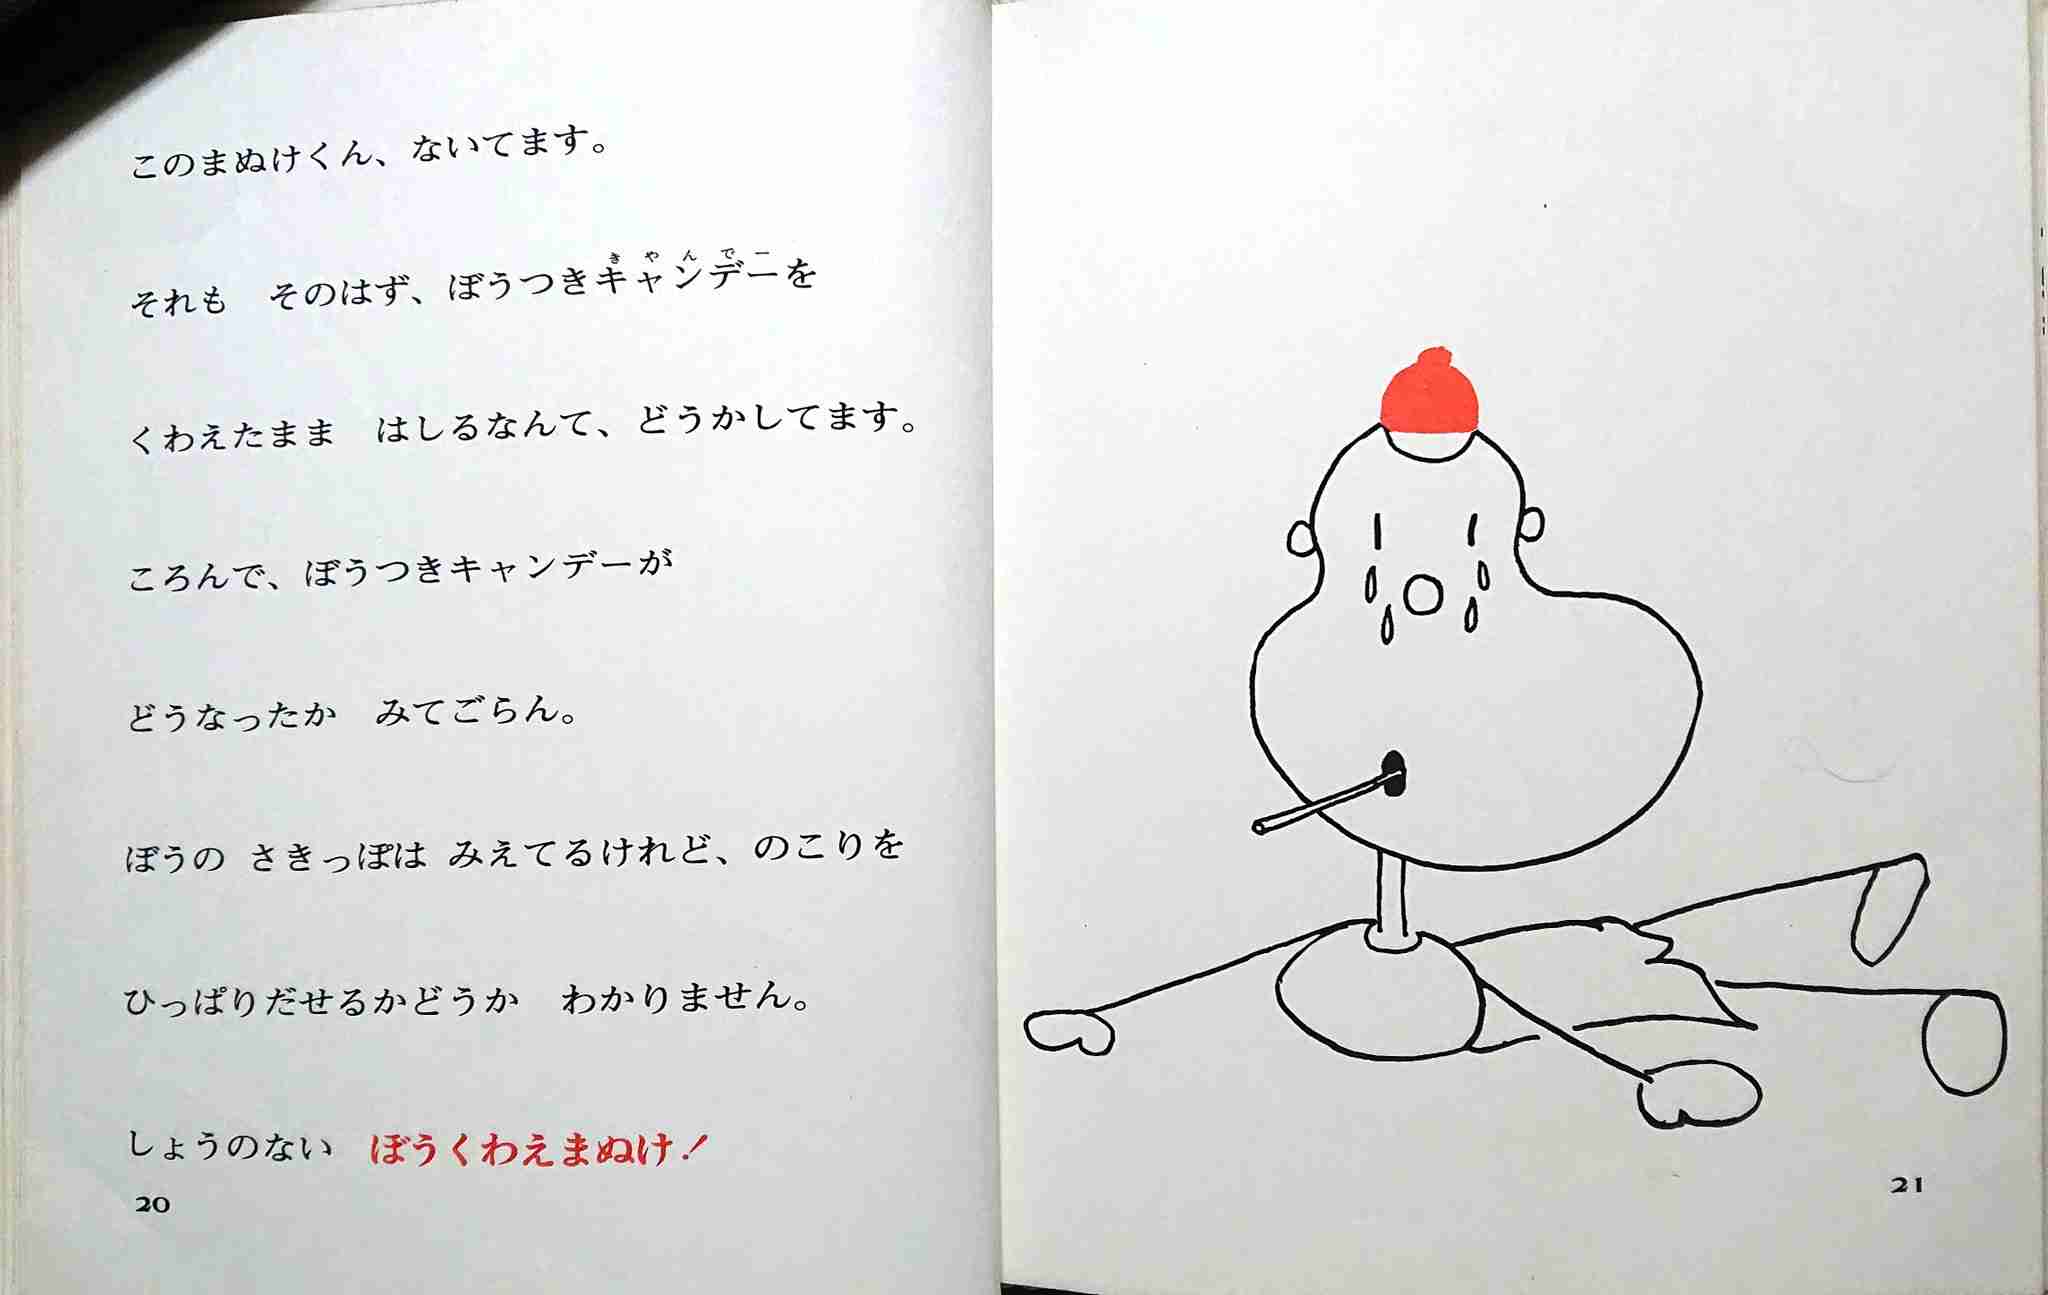 このまぬけくん、ないてます。
それも　そのはず、ぼうつきキャンデーを
きやんでー
くわえたまま　はしるなんて、どうかしてます。
ころんで、ぼうつきキャンデーが
どうなったか　みてごらん。
ぼうの さきっぽは みえてるけれど、のこりを
ひっぱりだせるかどうか　わかりません。
しょうのない　ぼうくわえまぬけ！
20
21